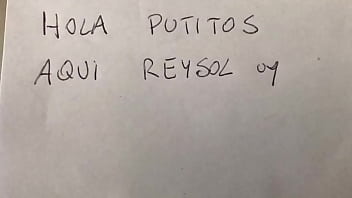 HOLA PUTITOS
AQUI REYSOL 04